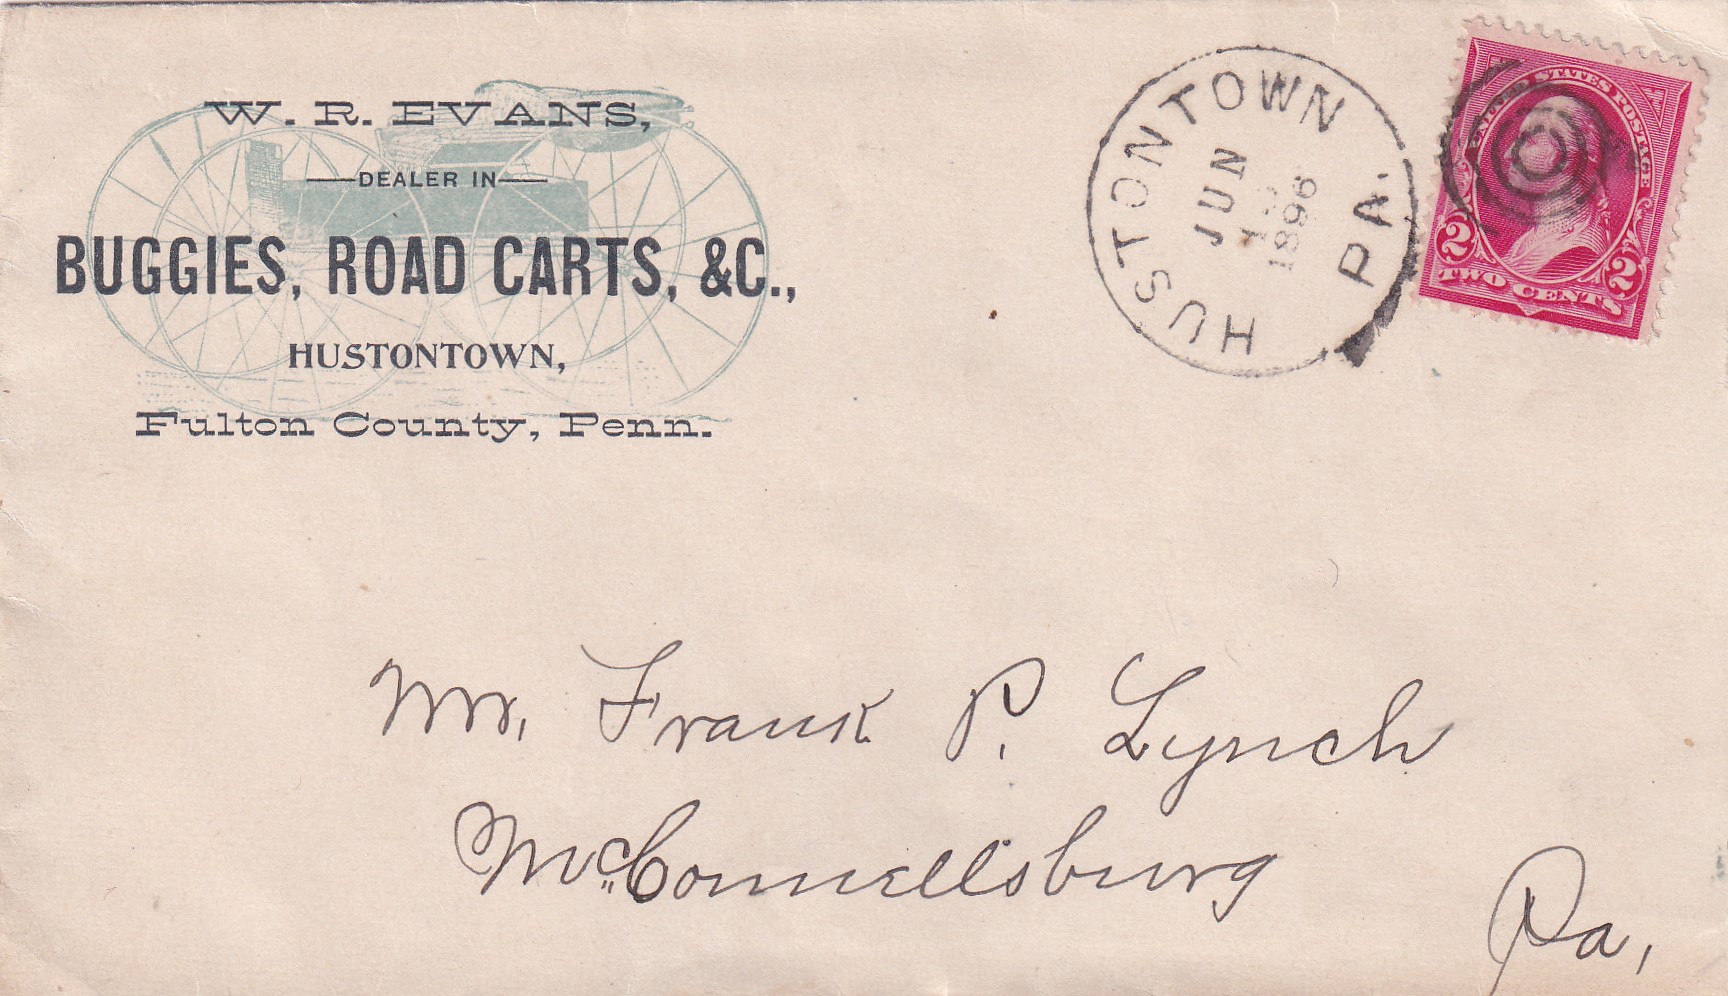 W. R. EVANS,
DEALER IN
BUGGIES, ROAD CARTS, &C.,
HUSTONTOWN,
Fulton County, Penn.
HUSTONTOWN PA.
JUN
1896
UNITED STATES POSTAGE
2 2
TWO CENTS
Mr. Frank P. Lynch
McConnellsburg
Pa,